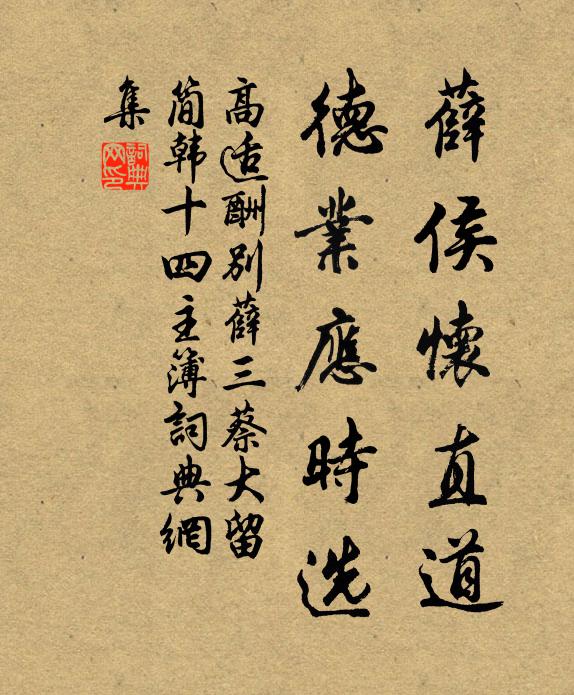 薛侯懷直道
德業應時选
高适酬别薛三蔡大留
简韩十四主簿詞典網
集
詞典
网印